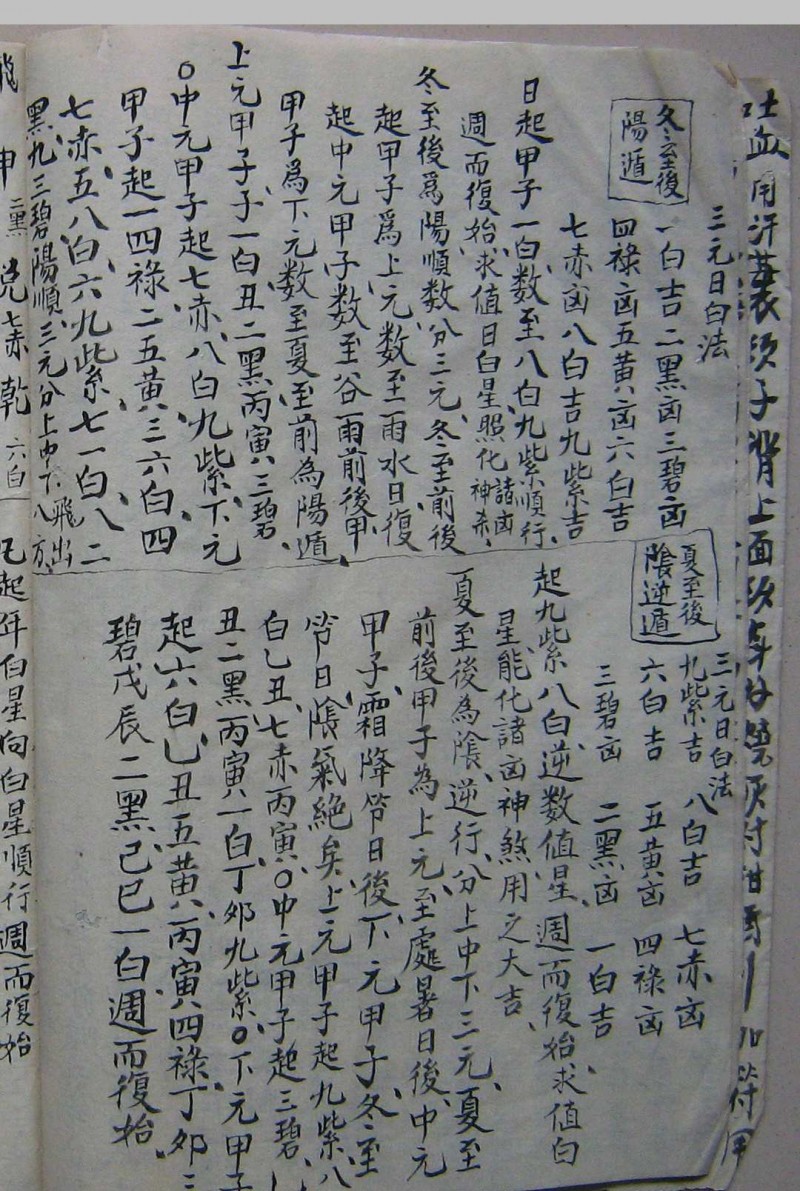 冬至後
陽遁
三元日白法
一白吉二黑凶三碧凶
四祿凶五黃凶六白吉
七赤凶八白吉九紫吉
日起甲子一白数至八白九紫順行、
週而復始、求值日白星照化諸凶神杀、
冬至後為陽順数分三元、冬至前後
起甲子為上元、数至雨水日復
起中元甲子、数至谷雨前後甲
甲子為下元数至夏至前為陽遁、
上元甲子子一白丑二黑丙寅三碧、
〇中元甲子起七赤、八白九紫、下元
甲子起一四祿二五黃三六白四
七赤五八白六九紫、七一白、八二
黑、九三碧陽順、三元分上中下飛出八方、
夏至後
陰逆遁
三元日白法
九紫吉 八白吉 七赤凶
六白吉 五黃凶 四祿凶
三碧凶 二黑凶 一白吉
起九紫八白逆数值星週而復始求值白
星能化諸凶神煞用之大吉、
夏至後為陰逆行、分上中下三元、夏至
前後甲子為上元、至處暑日後、中元
甲子、霜降節日後、下元甲子、冬至
節日陰氣絕矣、上元甲子起九紫、八
白乙丑、七赤丙寅〇中元甲子起三碧、乙
丑二黑、丙寅一白、丁夘九紫〇下元甲子
起六白、乙丑五黃、丙寅四祿、丁夘三
碧戊辰二黑、己巳一白週而復始、
申 二黑 兌七赤 乾六白
起年白星向白星順行週而復始
吐血用